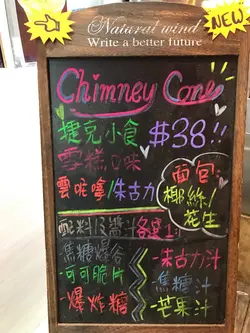 NEW
Natural wind
Write a better future
Chimney Cone
捷克小食 $38!!
雪糕口味
雲呢嗱/朱古力
面包:
椰絲/
花生
配料及醬汁各選1:
-焦糖爆谷
-可可脆片
-爆炸糖
-朱古力汁
-焦糖汁
-芒果汁